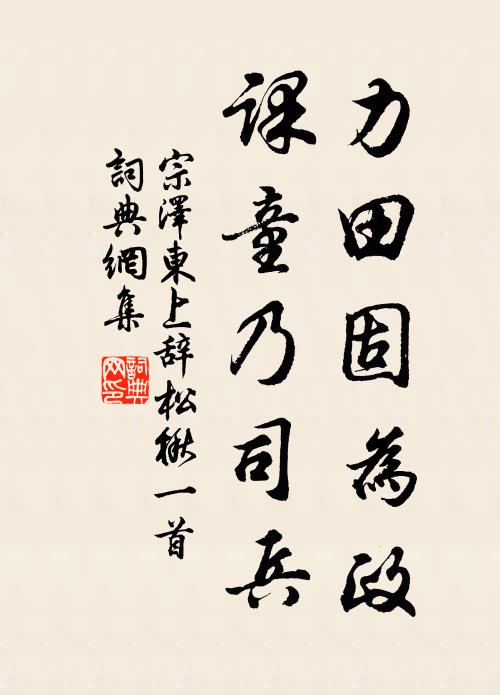 力田固為政
課童乃司兵
宗澤東上辞松楸一首
詞典網集
詞典網印